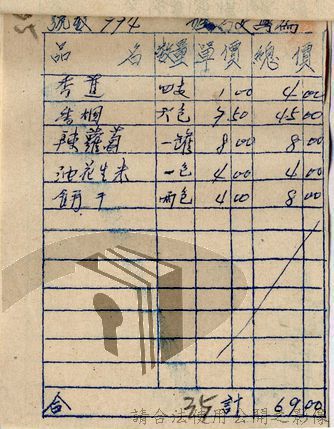 號數 994
品名 數量 單價 總價
香蕉 四支 1 00 4 00
香烟 六包 7 50 45 00
辣蘿蔔 一罐 8 00 8 00
油花生米 一包 4 00 4 00
餅干 兩包 4 00 8 00
合 35 計 69 00
請合法使用公開之影像